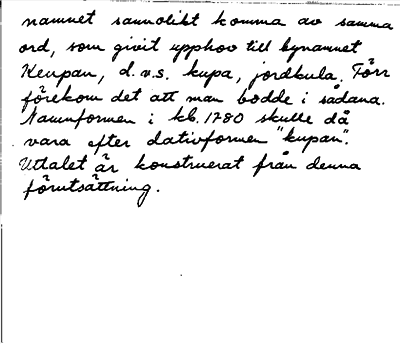 namnet sannolikt komma av samma
ord, som givit upphov till bynamnet
Keupan, d.v.s. kupa, jordkula. Förr
förekom det att man bodde i sådana.
Namnformen i kb. 1780 skulle då
vara efter dativformen "kupan".
Uttalet är konstruerat från denna
förutsättning.